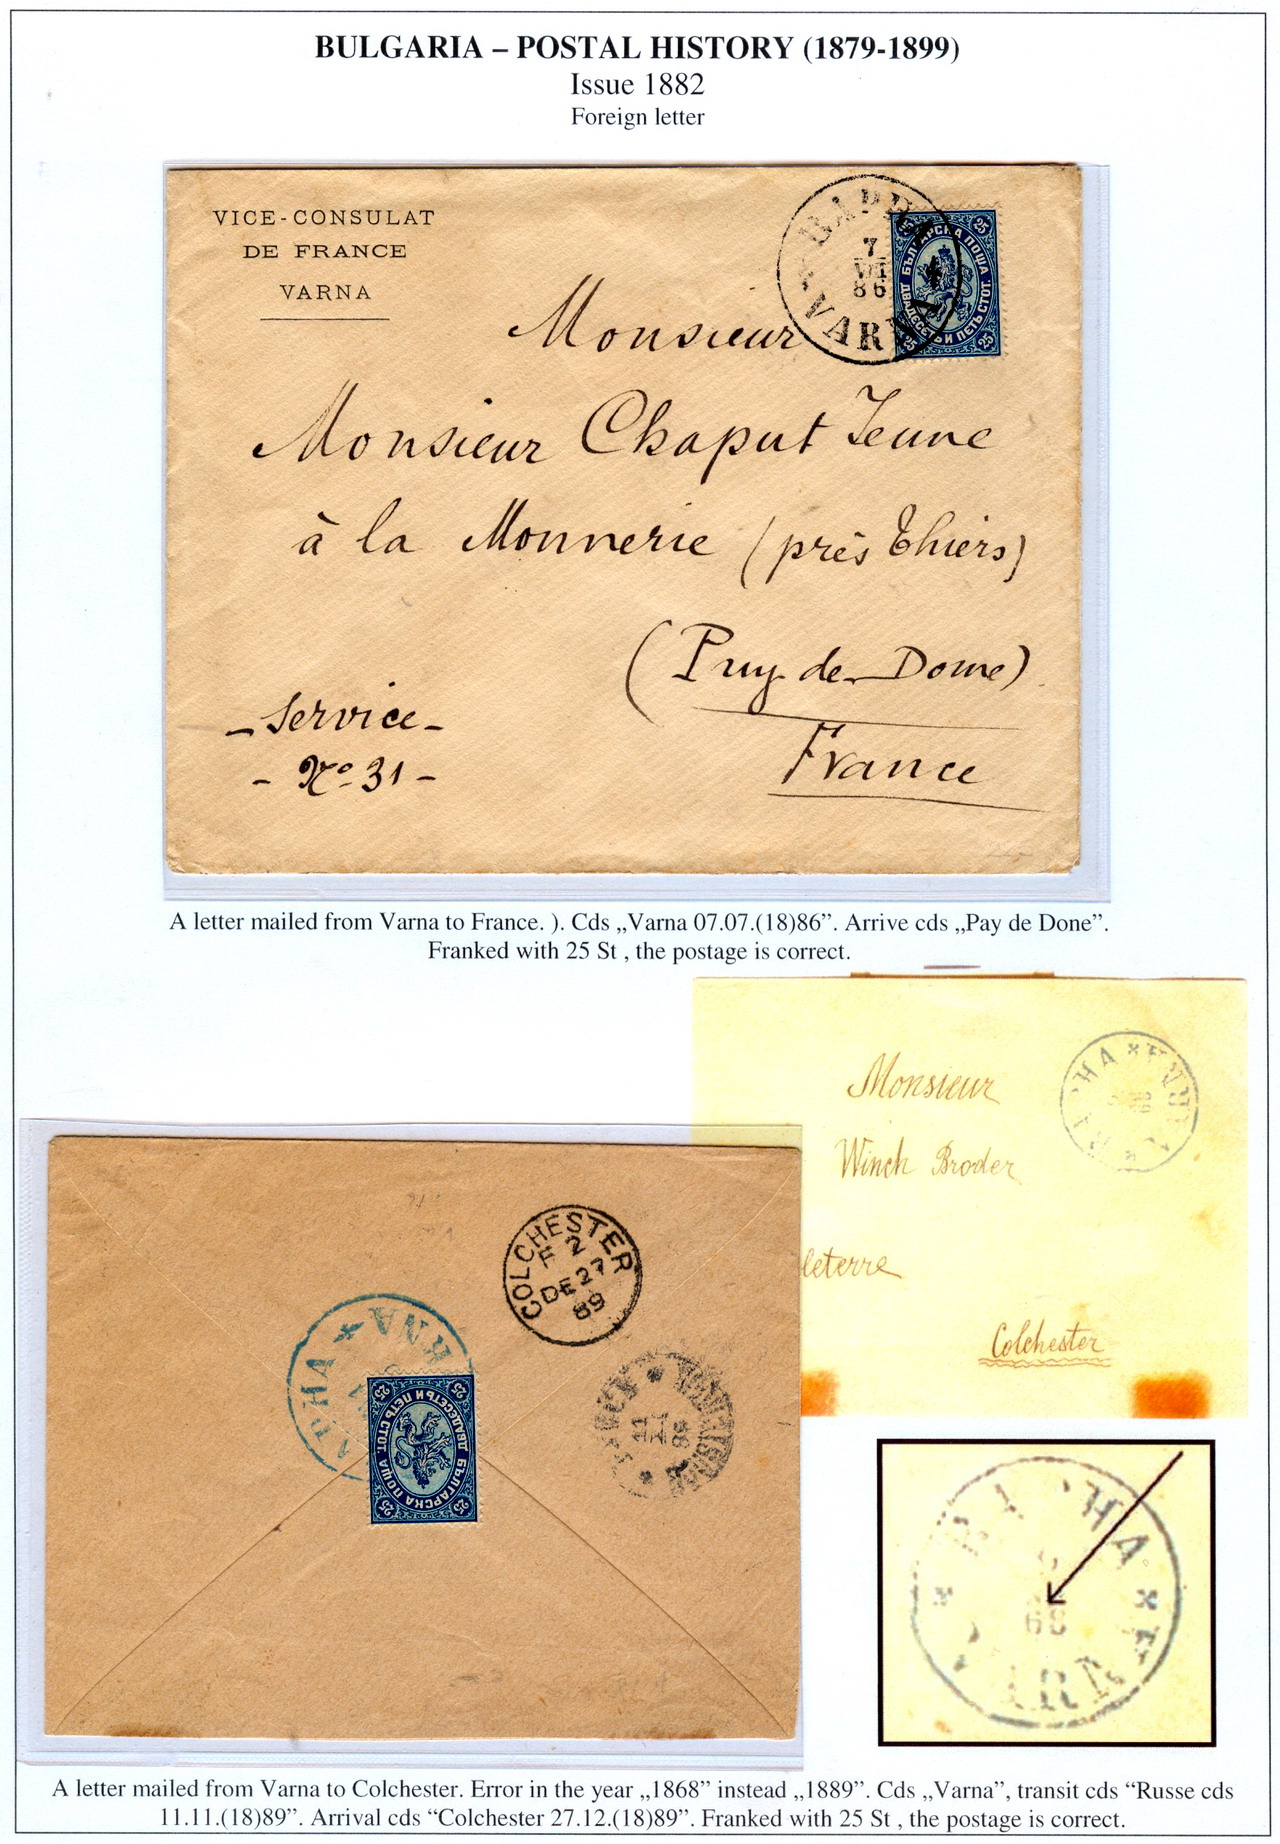 BULGARIA – POSTAL HISTORY (1879-1899)
Issue 1882
Foreign letter
VICE-CONSULAT
DE FRANCE
VARNA
ВАРНА
7
VII
86
VARNA
25 25
БЪЛГАРСКА ПОША
ДВАДЕСЕТЬ И ПЕТЬ СТОТ.
25 25
Monsieur
Monsieur Chaput Jeune
à la Monnerie (près Thiers)
(Puy-de-Dome)
France
- Service -
- No 31 -
A letter mailed from Varna to France. ). Cds „Varna 07.07.(18)86”. Arrive cds „Pay de Done”.
Franked with 25 St , the postage is correct.
Monsieur
Winch Broder
leterre
Colchester
COLCHESTER
F 2
DE 27
89
АРНА
RNA
25 25
БЪЛГАРСКА ПОША
ДВАДЕСЕТЬ И ПЕТЬ СТОТ.
25 25
A letter mailed from Varna to Colchester. Error in the year „1868” instead „1889”. Cds „Varna”, transit cds “Russe cds
11.11.(18)89”. Arrival cds “Colchester 27.12.(18)89”. Franked with 25 St , the postage is correct.